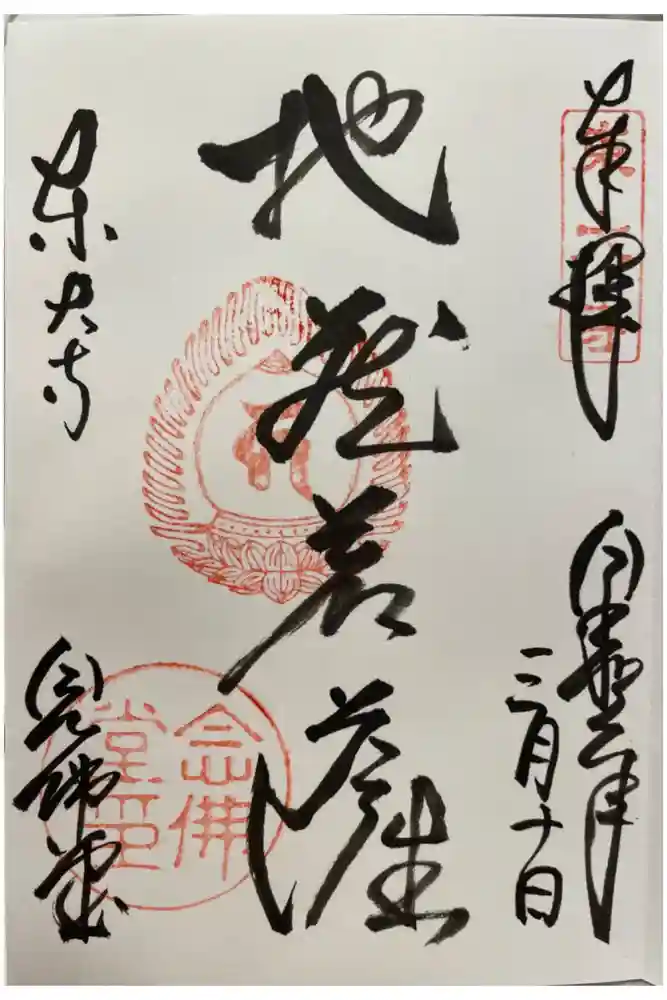 奉拝
三月十日
地蔵菩薩
東大寺
念佛堂
念佛堂印